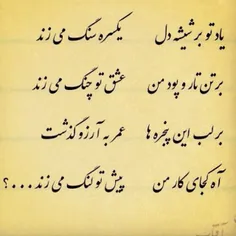 یاد تو بر شیشه دل یکسره سنگ می زند
بر تن تار و پود من عشق تو چنگ می زند
بر لب این پنجره ها عمر به آرزو گذشت
آه کجای کار من پیش تو لنگ می زند...؟